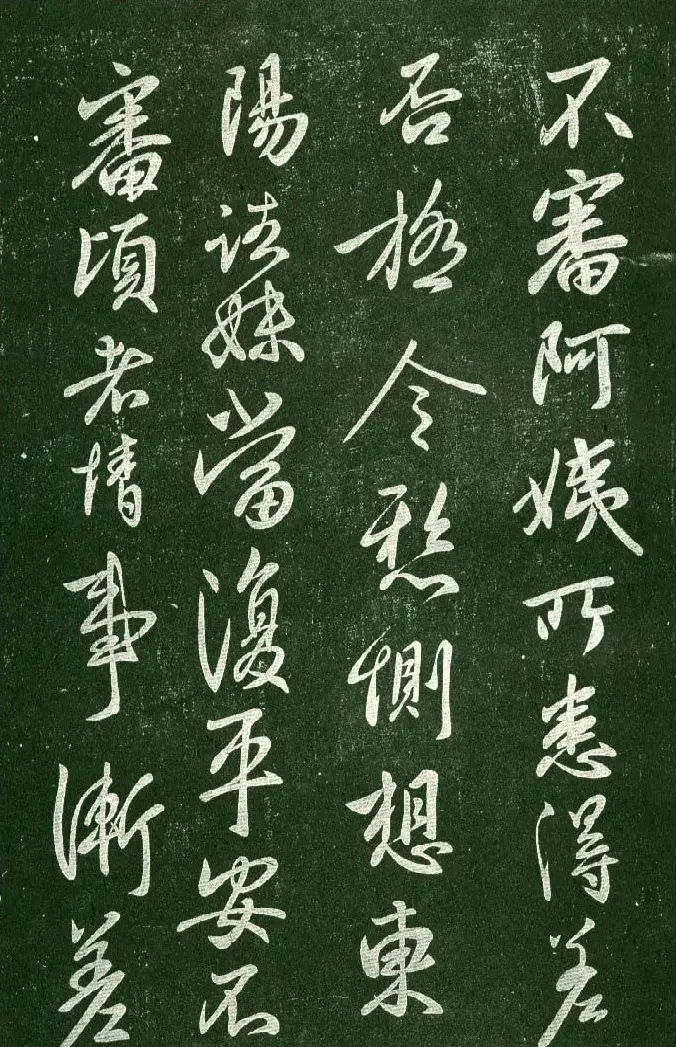 不審阿姨所患得差
否極令愁惻想東
陽諸妹當復平安不
審頃者情事漸差